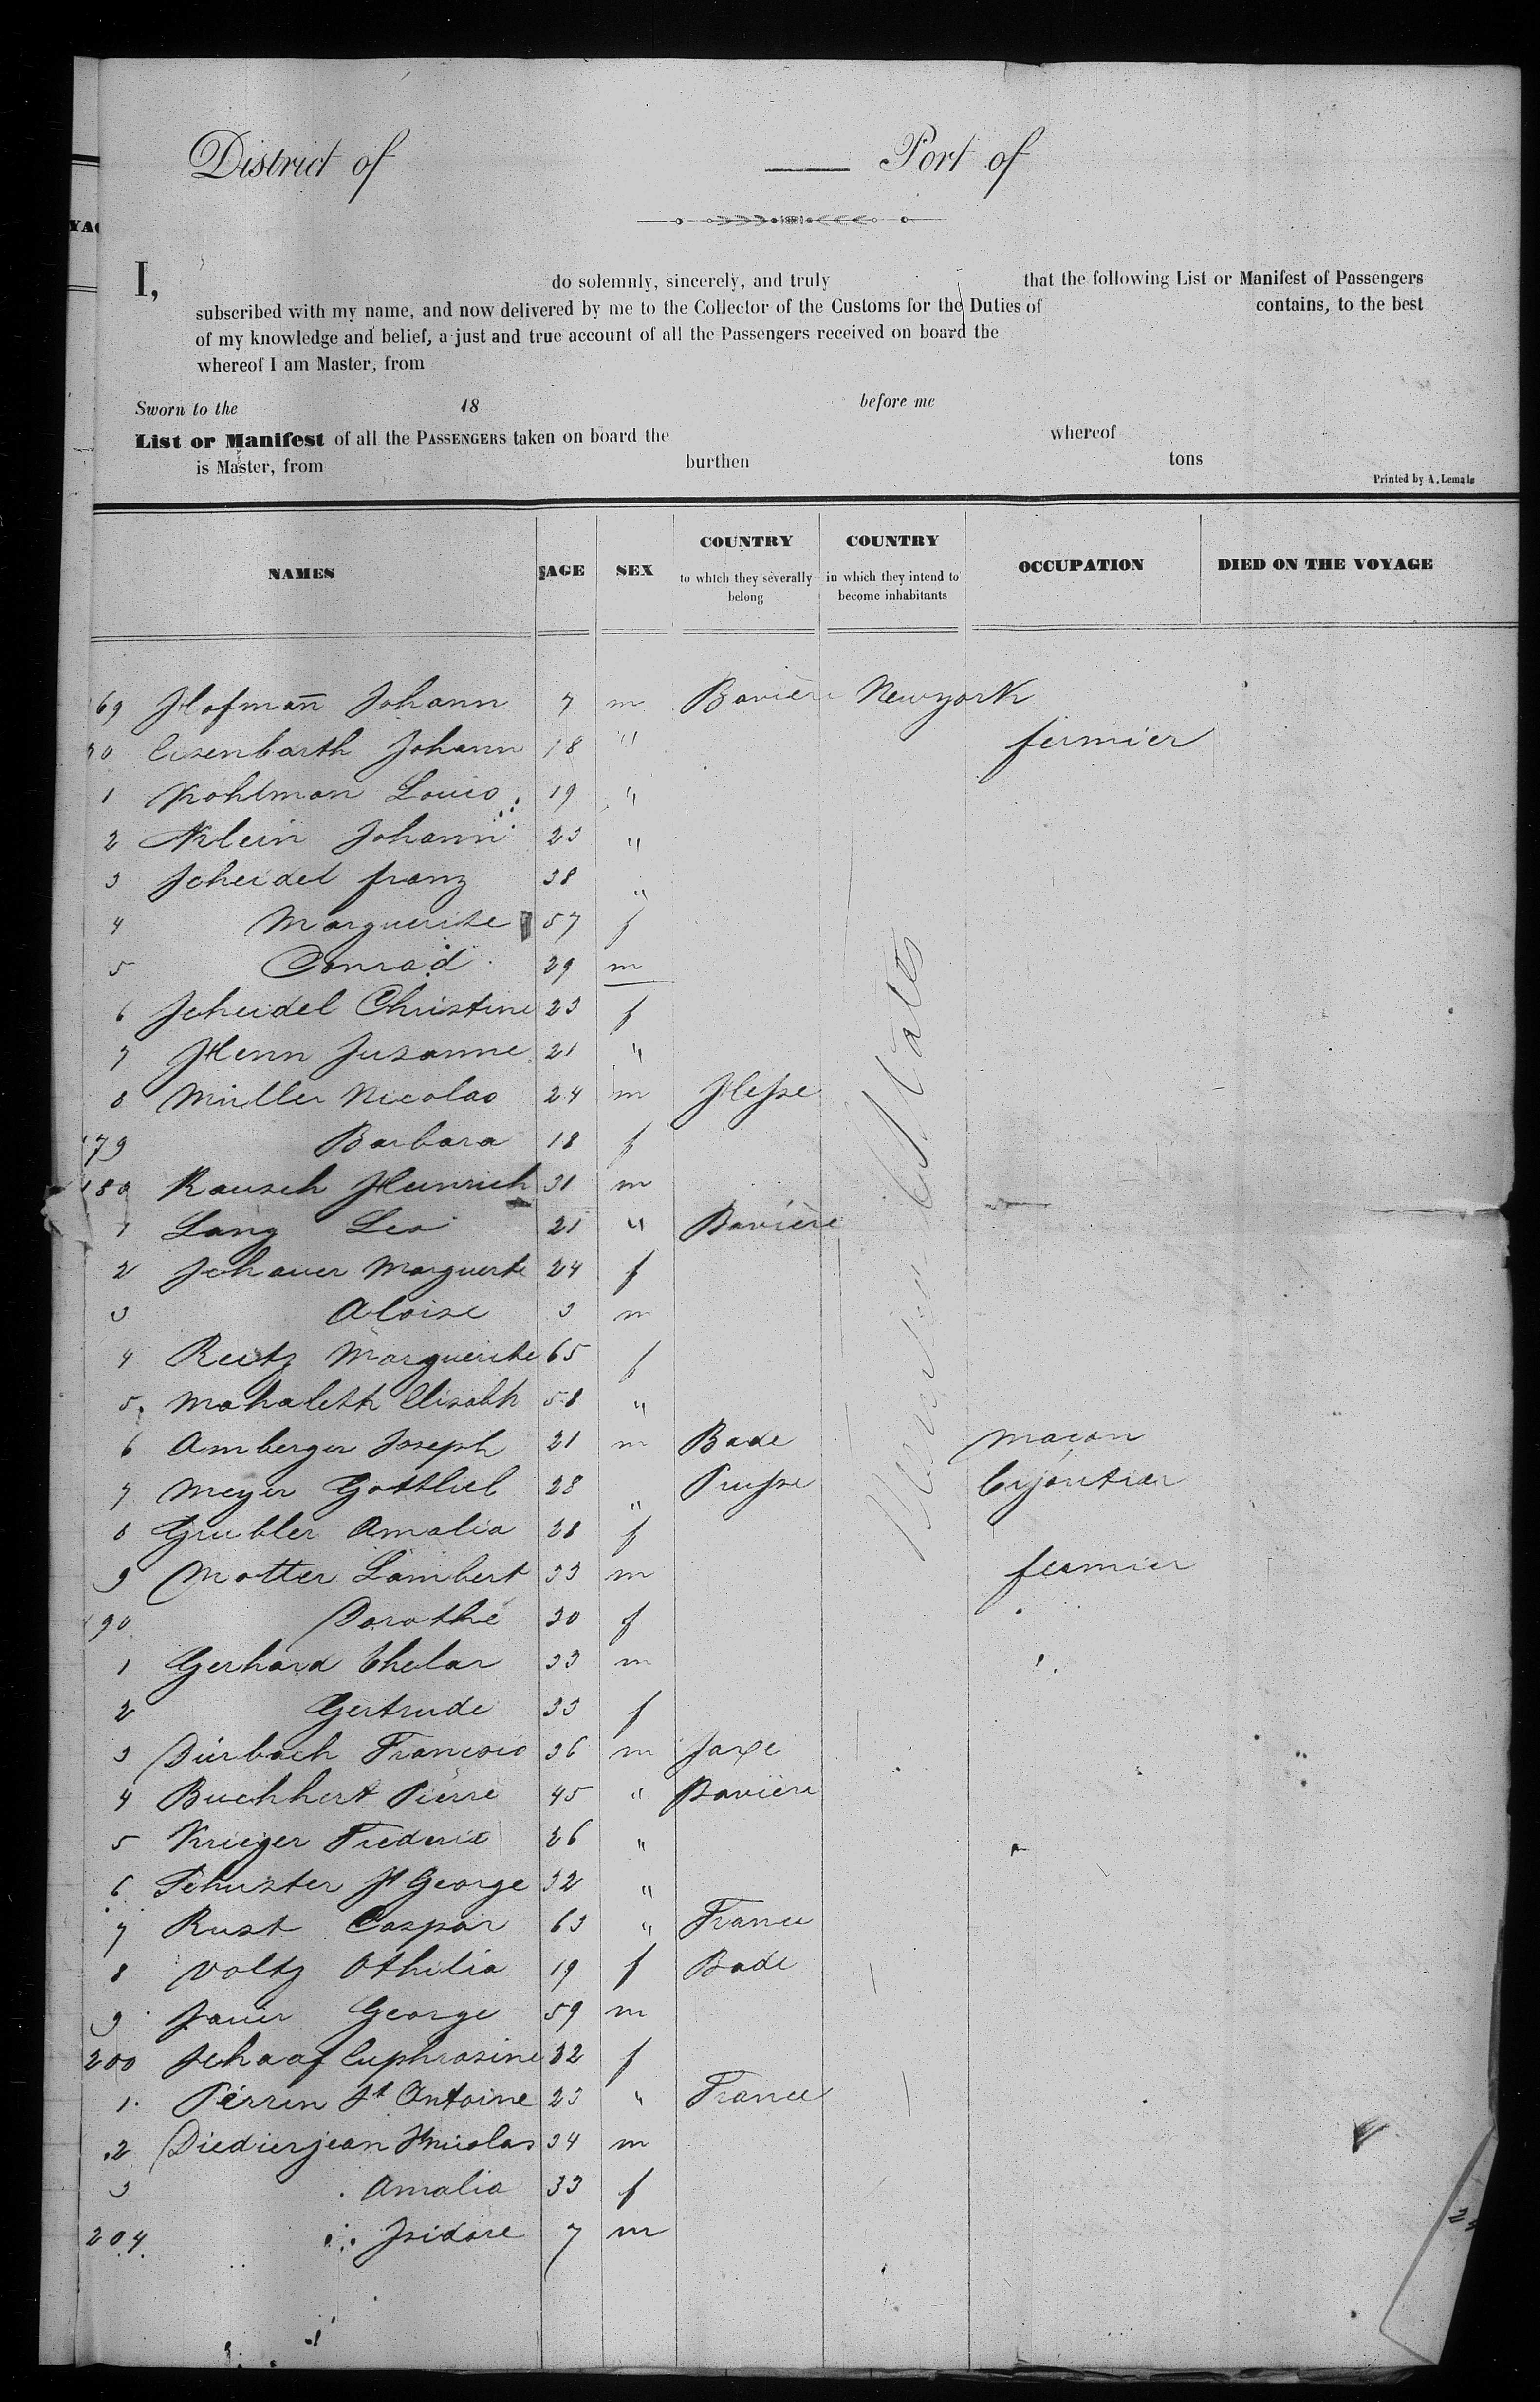 District of Port of
I, do solemnly, sincerely, and truly that the following List or Manifest of Passengers
subscribed with my name, and now delivered by me to the Collector of the Customs for the Duties of contains, to the best
of my knowledge and belief, a just and true account of all the Passengers received on board the
whereof I am Master, from
Sworn to the 18 before me
List or Manifest of all the PASSENGERS taken on board the whereof
is Master, from burthen tons
Printed by A. Lemale
NAMES AGE SEX COUNTRY to which they severally belong COUNTRY in which they intend to become inhabitants OCCUPATION DIED ON THE VOYAGE
169 Hofman̄ Johann 7 m Bavière Newyork
70 Eisenbarth Johann 18 " fermier
1 Kohlman Louis 19 "
2 Klein Johann 23 "
3 Scheidel franz 38 "
4 Marguerite 57 f
5 Conrad 29 m
6 Scheidel Christine 23 f
7 Henn Susanne 21 "
8 Müller Nicolas 24 m Hesse
179 Barbara 18 f
180 Rausch Heinrich 31 m
1 Lang Leo 21 " Bavière
2 Schauer Marguerite 24 f
3 Aloise 3 m
4 Reitz Marguerite 65 f
5 Mahaleth Elisabth 58 "
6 Amberger Joseph 21 m Bade macon
7 Meyer Gottlieb 28 " Prusse bijoutier
8 Grubler Amalia 28 f
9 Motter Lambert 33 m fermier
190 Dorothé 30 f
1 Gerhard Thelar 33 m
2 Gertrude 33 f
3 Dürbach Francois 36 m Saxe
4 Buchhert Pierre 45 " Bavière
5 Krieger Frederic 26 "
6 Schuster Jt George 32 "
7 Rust Caspar 63 " France
8 Voltz Othilia 19 f Bade
9 Sauer George 59 m
200 Schaaf Euphrasine 32 f
1 Perrin Jt Antoine 23 " France
2 Diedierjean Nicolas 34 m
3 Amalia 33 f
204 Isidore 7 m
States